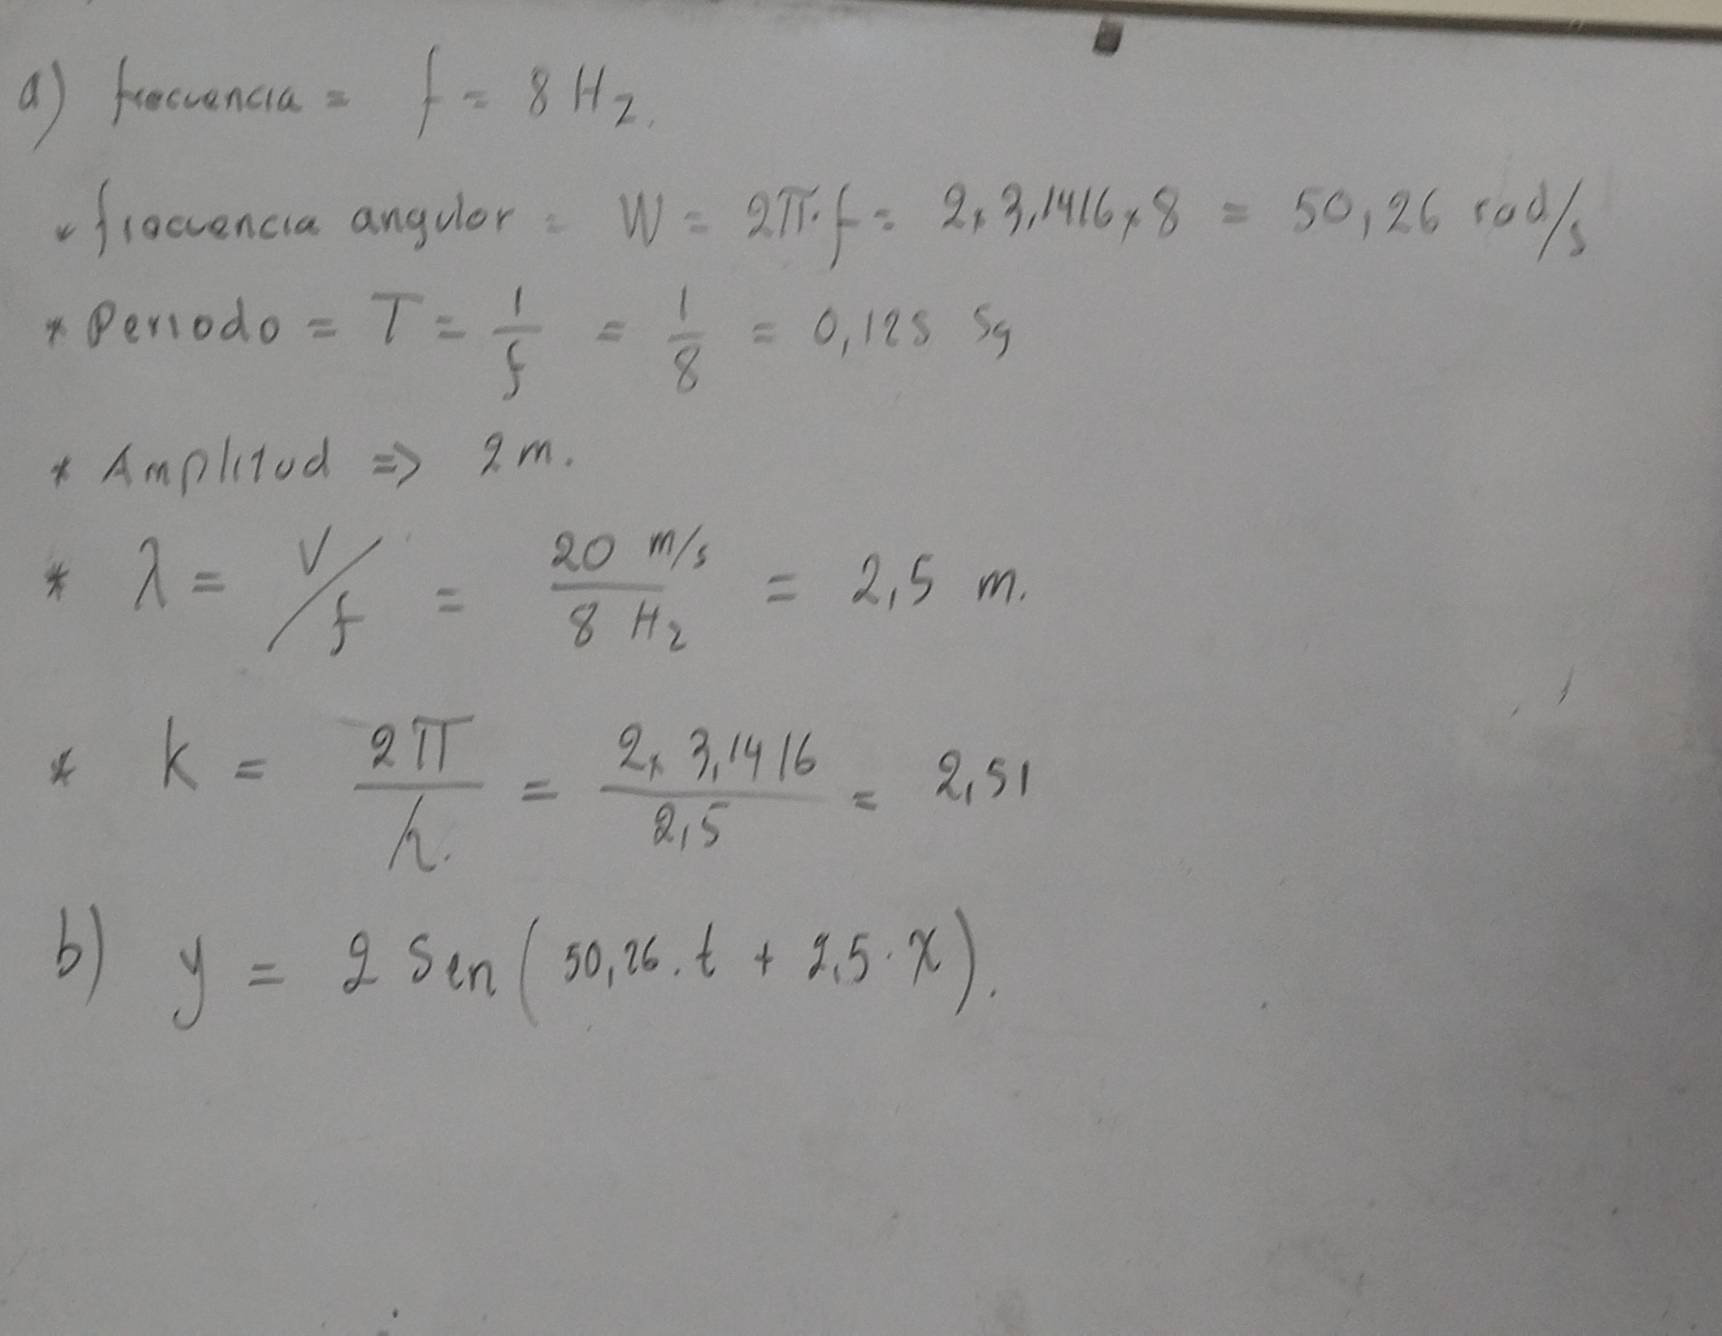 a) frecuencia = f = 8 Hz.
* frecuencia angular = W = 2π.f = 2x3,1416x8 = 50,26 rad/s
* Periodo = T = 1/f = 1/8 = 0,125 Sg
* Amplitud => 2 m.
* λ = V/f = 20 m/s / 8 Hz = 2,5 m.
* k = 2π/λ. = 2x3,1416/2,5 = 2,51
b) y = 2 Sen(50,26.t + 2,5.x).